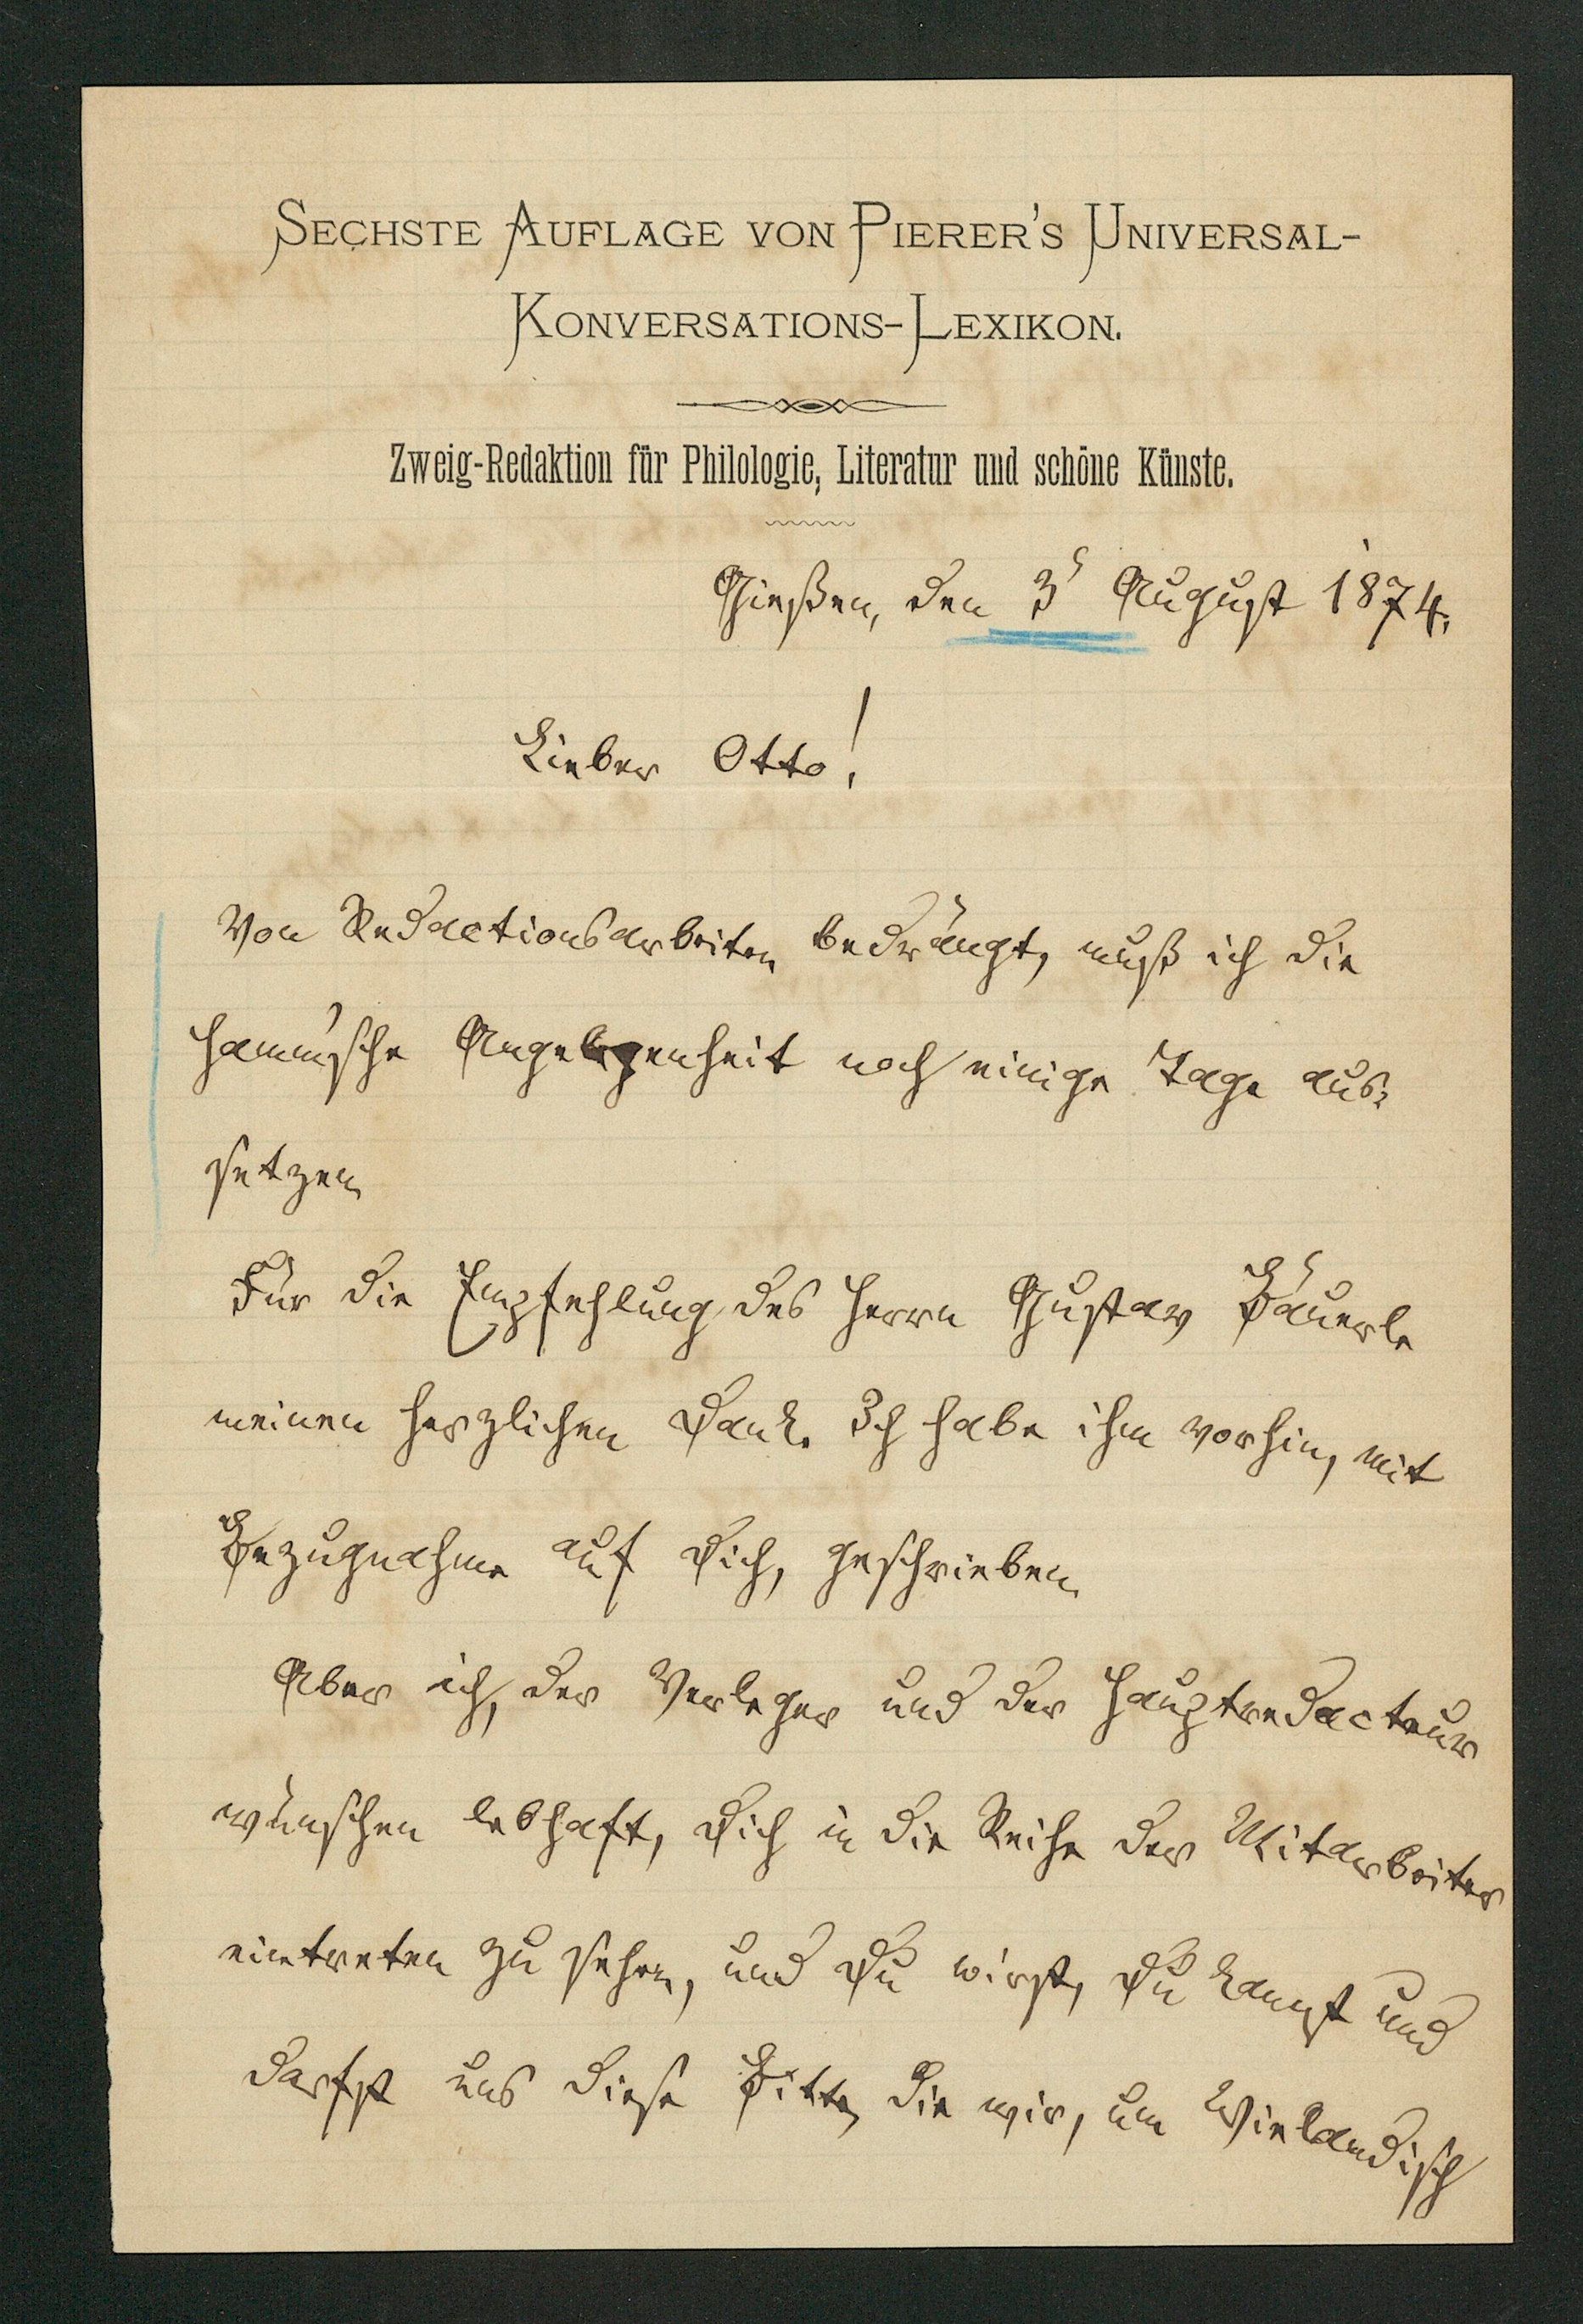 Sechste Auflage von Pierer's Universal-
Konversations-Lexikon.
Zweig-Redaktion für Philologie, Literatur und schöne Künste.
Gießen, den 3 August 1874.
Lieber Otto!
Von Redactionsarbeiten bedrängt, muß ich die
Hamm'sche Angelegenheit noch einige Tage aus-
setzen
Für die Empfehlung des Herrn Gustav Bäuerle
meinen herzlichen Dank. Ich habe ihm vorhin, mit
Bezugnahme auf Dich, geschrieben
Aber ich, der Verleger und der Hauptredacteur
wünschen lebhaft, Dich in die Reihe der Mitarbeiter
eintreten zu sehen, und Du wirst, Du kannst und
darfst uns diese Bitte, die wir, um Wielandisch